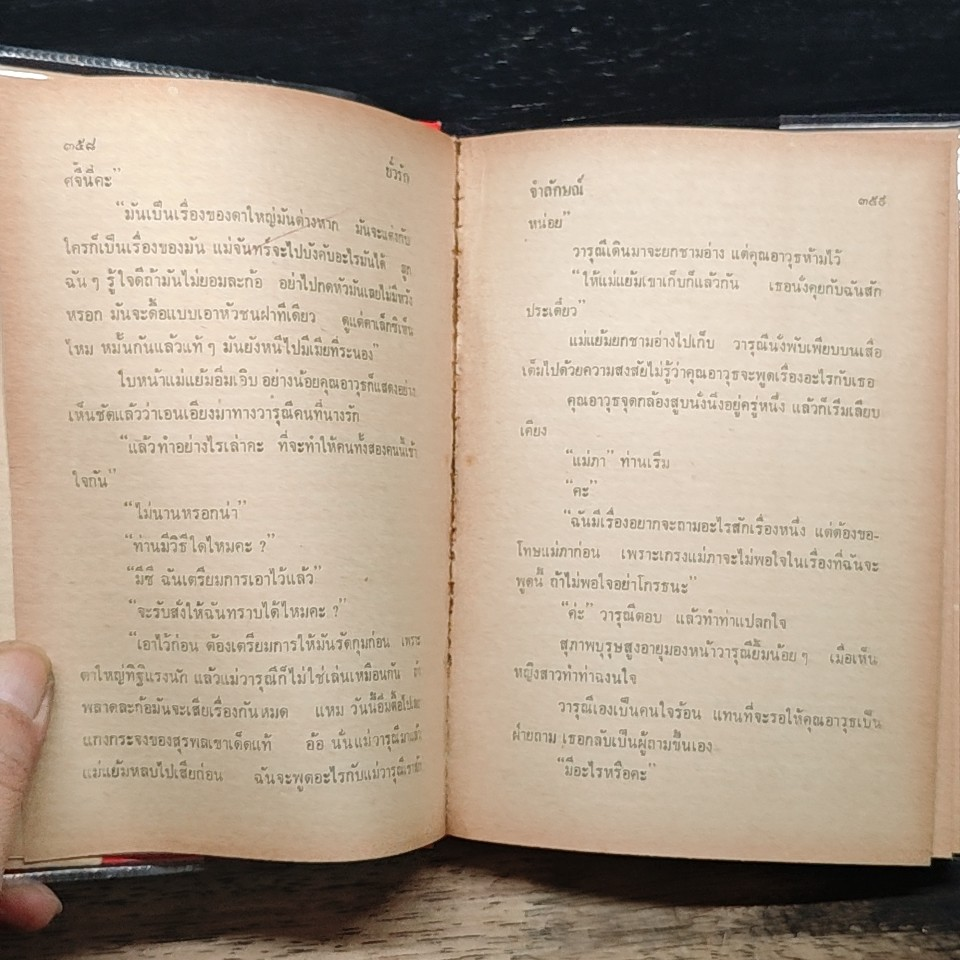 ๓๕๘
ยั่วรัก
ศจีนี่คะ”
“มันเป็นเรื่องของตาใหญ่มันต่างหาก มันจะแต่งกับ
ใครก็เป็นเรื่องของมัน แม่จันทร์จะไปบังคับอะไรมันได้ ลูก
ฉันๆ รู้ใจดีถ้ามันไม่ยอมละก้อ อย่าไปกดหัวมันเลยไม่มีหวัง
หรอก มันจะดื้อแบบเอาหัวชนฝาทีเดียว ดูแต่ตาเล็กซิเห็น
ไหม หมั้นกันแล้วแท้ๆ มันยังหนีไปมีเมียที่ระนอง”
ใบหน้าแม่แย้มอิ่มเอิบ อย่างน้อยคุณอาวุธก็แสดงอย่าง
เห็นชัดแล้วว่าเอนเอียงมาทางวารุณีคนที่นางรัก
“แล้วทำอย่างไรเล่าคะ ที่จะทำให้คนทั้งสองคนนี้เข้า
ใจกัน”
“ไม่นานหรอกน่า”
“ท่านมีวิธีใดไหมคะ ?”
“มีซี ฉันเตรียมการเอาไว้แล้ว”
“จะรับสั่งให้ฉันทราบได้ไหมคะ ?”
“เอาไว้ก่อน ต้องเตรียมการให้มันรัดกุมก่อน เพราะ
ตาใหญ่ทิฐิแรงนัก แล้วแม่วารุณีก็ไม่ใช่เล่นเหมือนกัน
พลาดละก้อมันจะเสียเรื่องกันหมด แหม วันนี้อิ่มตื้อไปหมด
แกงกระจงของสุรพลเขาเด็ดแท้ อ้อ นั่นแม่วารุณีมาแล้ว
แม่แย้มหลบไปเสียก่อน ฉันจะพูดอะไรกับแม่วารุณี
จำลักษณ์
๓๕๙
หน่อย”
วารุณีเดินมาจะยกชามอ่าง แต่คุณอาวุธห้ามไว้
“ให้แม่แย้มเขาเก็บก็แล้วกัน เธอนั่งคุยกับฉันสัก
ประเดี๋ยว”
แม่แย้มยกชามอ่างไปเก็บ วารุณีนั่งพับเพียบบนเสื่อ
เต็มไปด้วยความสงสัยไม่รู้ว่าคุณอาวุธจะพูดเรื่องอะไรกับเธอ
คุณอาวุธจุดกล้องสูบนั่งนิ่งอยู่ครู่หนึ่ง แล้วก็เริ่มเลียบ
เคียง
“แม่ภา” ท่านเริ่ม
“คะ”
“ฉันมีเรื่องอยากจะถามอะไรสักเรื่องหนึ่ง แต่ต้องขอ-
โทษแม่ภาก่อน เพราะเกรงแม่ภาจะไม่พอใจในเรื่องที่ฉันจะ
พูดนี้ ถ้าไม่พอใจอย่าโกรธนะ”
“ค่ะ” วารุณีตอบ แล้วทำท่าแปลกใจ
สุภาพบุรุษสูงอายุมองหน้าวารุณียิ้มน้อยๆ เมื่อเห็น
หญิงสาวทำท่าฉงนใจ
วารุณีเองเป็นคนใจร้อน แทนที่จะรอให้คุณอาวุธเป็น
ฝ่ายถาม เธอกลับเป็นผู้ถามขึ้นเอง
“มีอะไรหรือคะ”